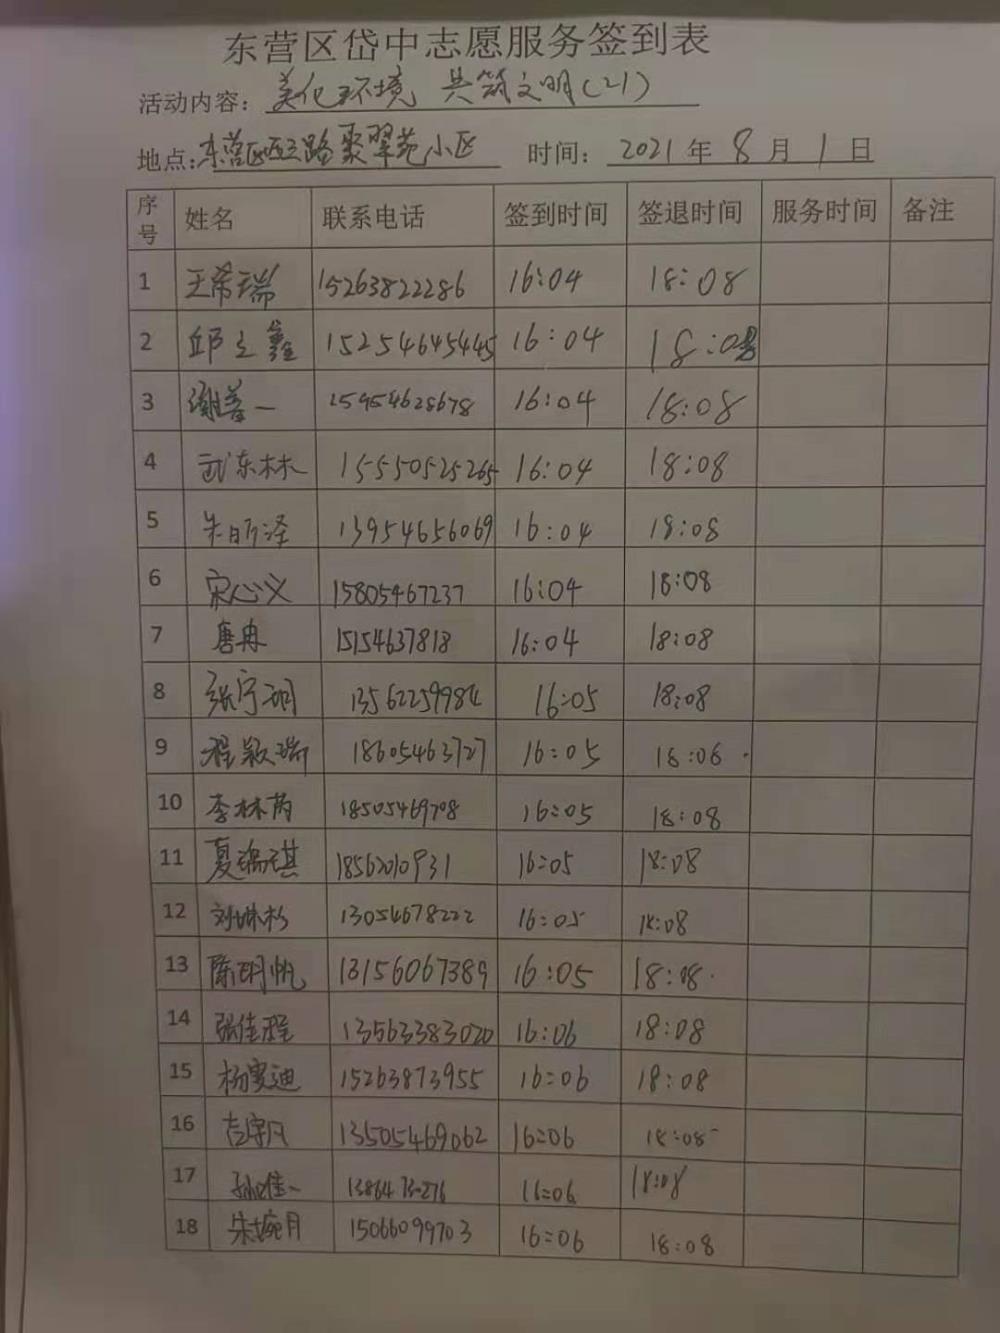 东营区岱中志愿服务签到表
活动内容: 美化环境 共筑文明(21)
地点: 东营区西三路聚翠苑小区 时间: 2021年8月1日
序号 姓名 联系电话 签到时间 签退时间 服务时间 备注
1 王希瑞 15263822286 16:04 18:08
2 邱立鑫 15254645445 16:04 18:08
3 谢善一 15954628678 16:04 18:08
4 武东林 15550525265 16:04 18:08
5 朱昕泽 13954656069 16:04 18:08
6 宋心义 15805467237 16:04 18:08
7 唐冉 15154637818 16:04 18:08
8 张宁玥 13562259984 16:05 18:08
9 程颖瑞 18605463727 16:05 18:08
10 李林芮 18505469708 16:05 18:08
11 夏瑞琪 18562010931 16:05 18:08
12 刘琳杉 13054678222 16:05 18:08
13 陈玥帆 13156067389 16:05 18:08
14 张佳程 13563383020 16:06 18:08
15 杨雯迪 15263873955 16:06 18:08
16 吉宇凡 13505469062 16:06 18:08
17 孙佳一 16:06 18:08
18 朱婉月 15066099703 16:06 18:08